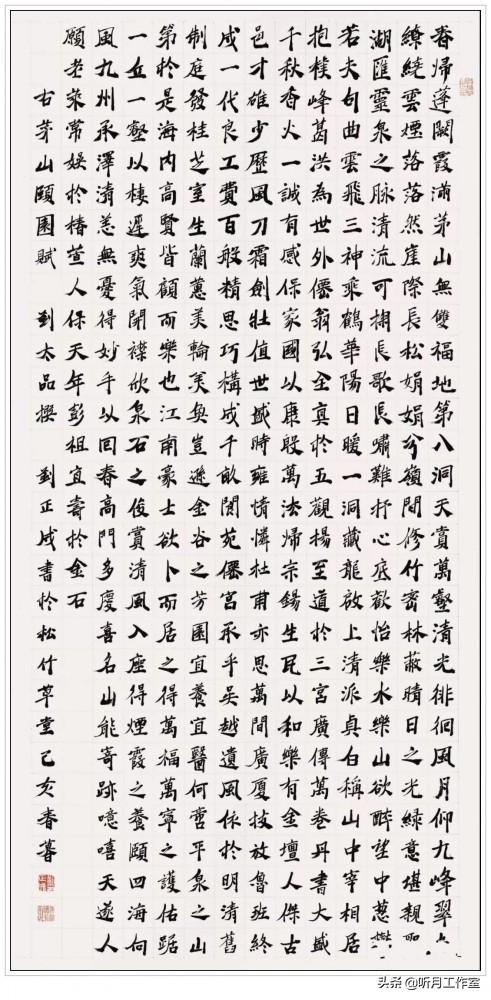 春歸蓬闕霞滿茅山無雙福地第八洞天賞萬壑清光徘徊風月仰九峰翠
繚繞雲煙落落然崖際長松娟娟兮嶺間修竹密林蔽晴日之光綠意堪親
湖匯靈泉之脉清流可掬長歌長嘯難抒心底歡怡樂水樂山欲醉望中蔥
若夫句曲雲飛三神乘鶴華陽日暖一洞藏龍啟上清派真白稱山中宰相居
抱樸峰葛洪為世外僊翁弘全真於五觀楊至道於三宮廣傳萬卷丹書大盛
千秋香火一誠有感保家國以康殷萬法歸宗錫生民以和樂有金壇人傑古
邑才雄少歷風刀霜劍壯值世盛時雍情憐杜甫亦思萬間廣厦技放魯班終
成一代良工費百般精思巧構成千畝閬苑僊宮承乎吳越遺風依於明清舊
制庭發桂芝室生蘭蕙美輪美奐豈遜金谷之芳園宜養宜醫何啻平泉之山
第於是海内高賢皆顧而樂也江南豪士欲卜而居之得萬福萬寧之護佑踞
一丘一壑以棲遲爽氣開襟欣泉石之俊賞清風入座得煙霞之養頤四海向
風九州承澤清恙無憂得妙手以回春高門多慶喜名山能寄跡噫嘻天遂人
願老萊常娱於椿萱人保天年彭祖宜壽於金石
右茅山頤園賦 劉太品撰 劉正成書於松竹草堂己亥春暮
头条 @听月工作室